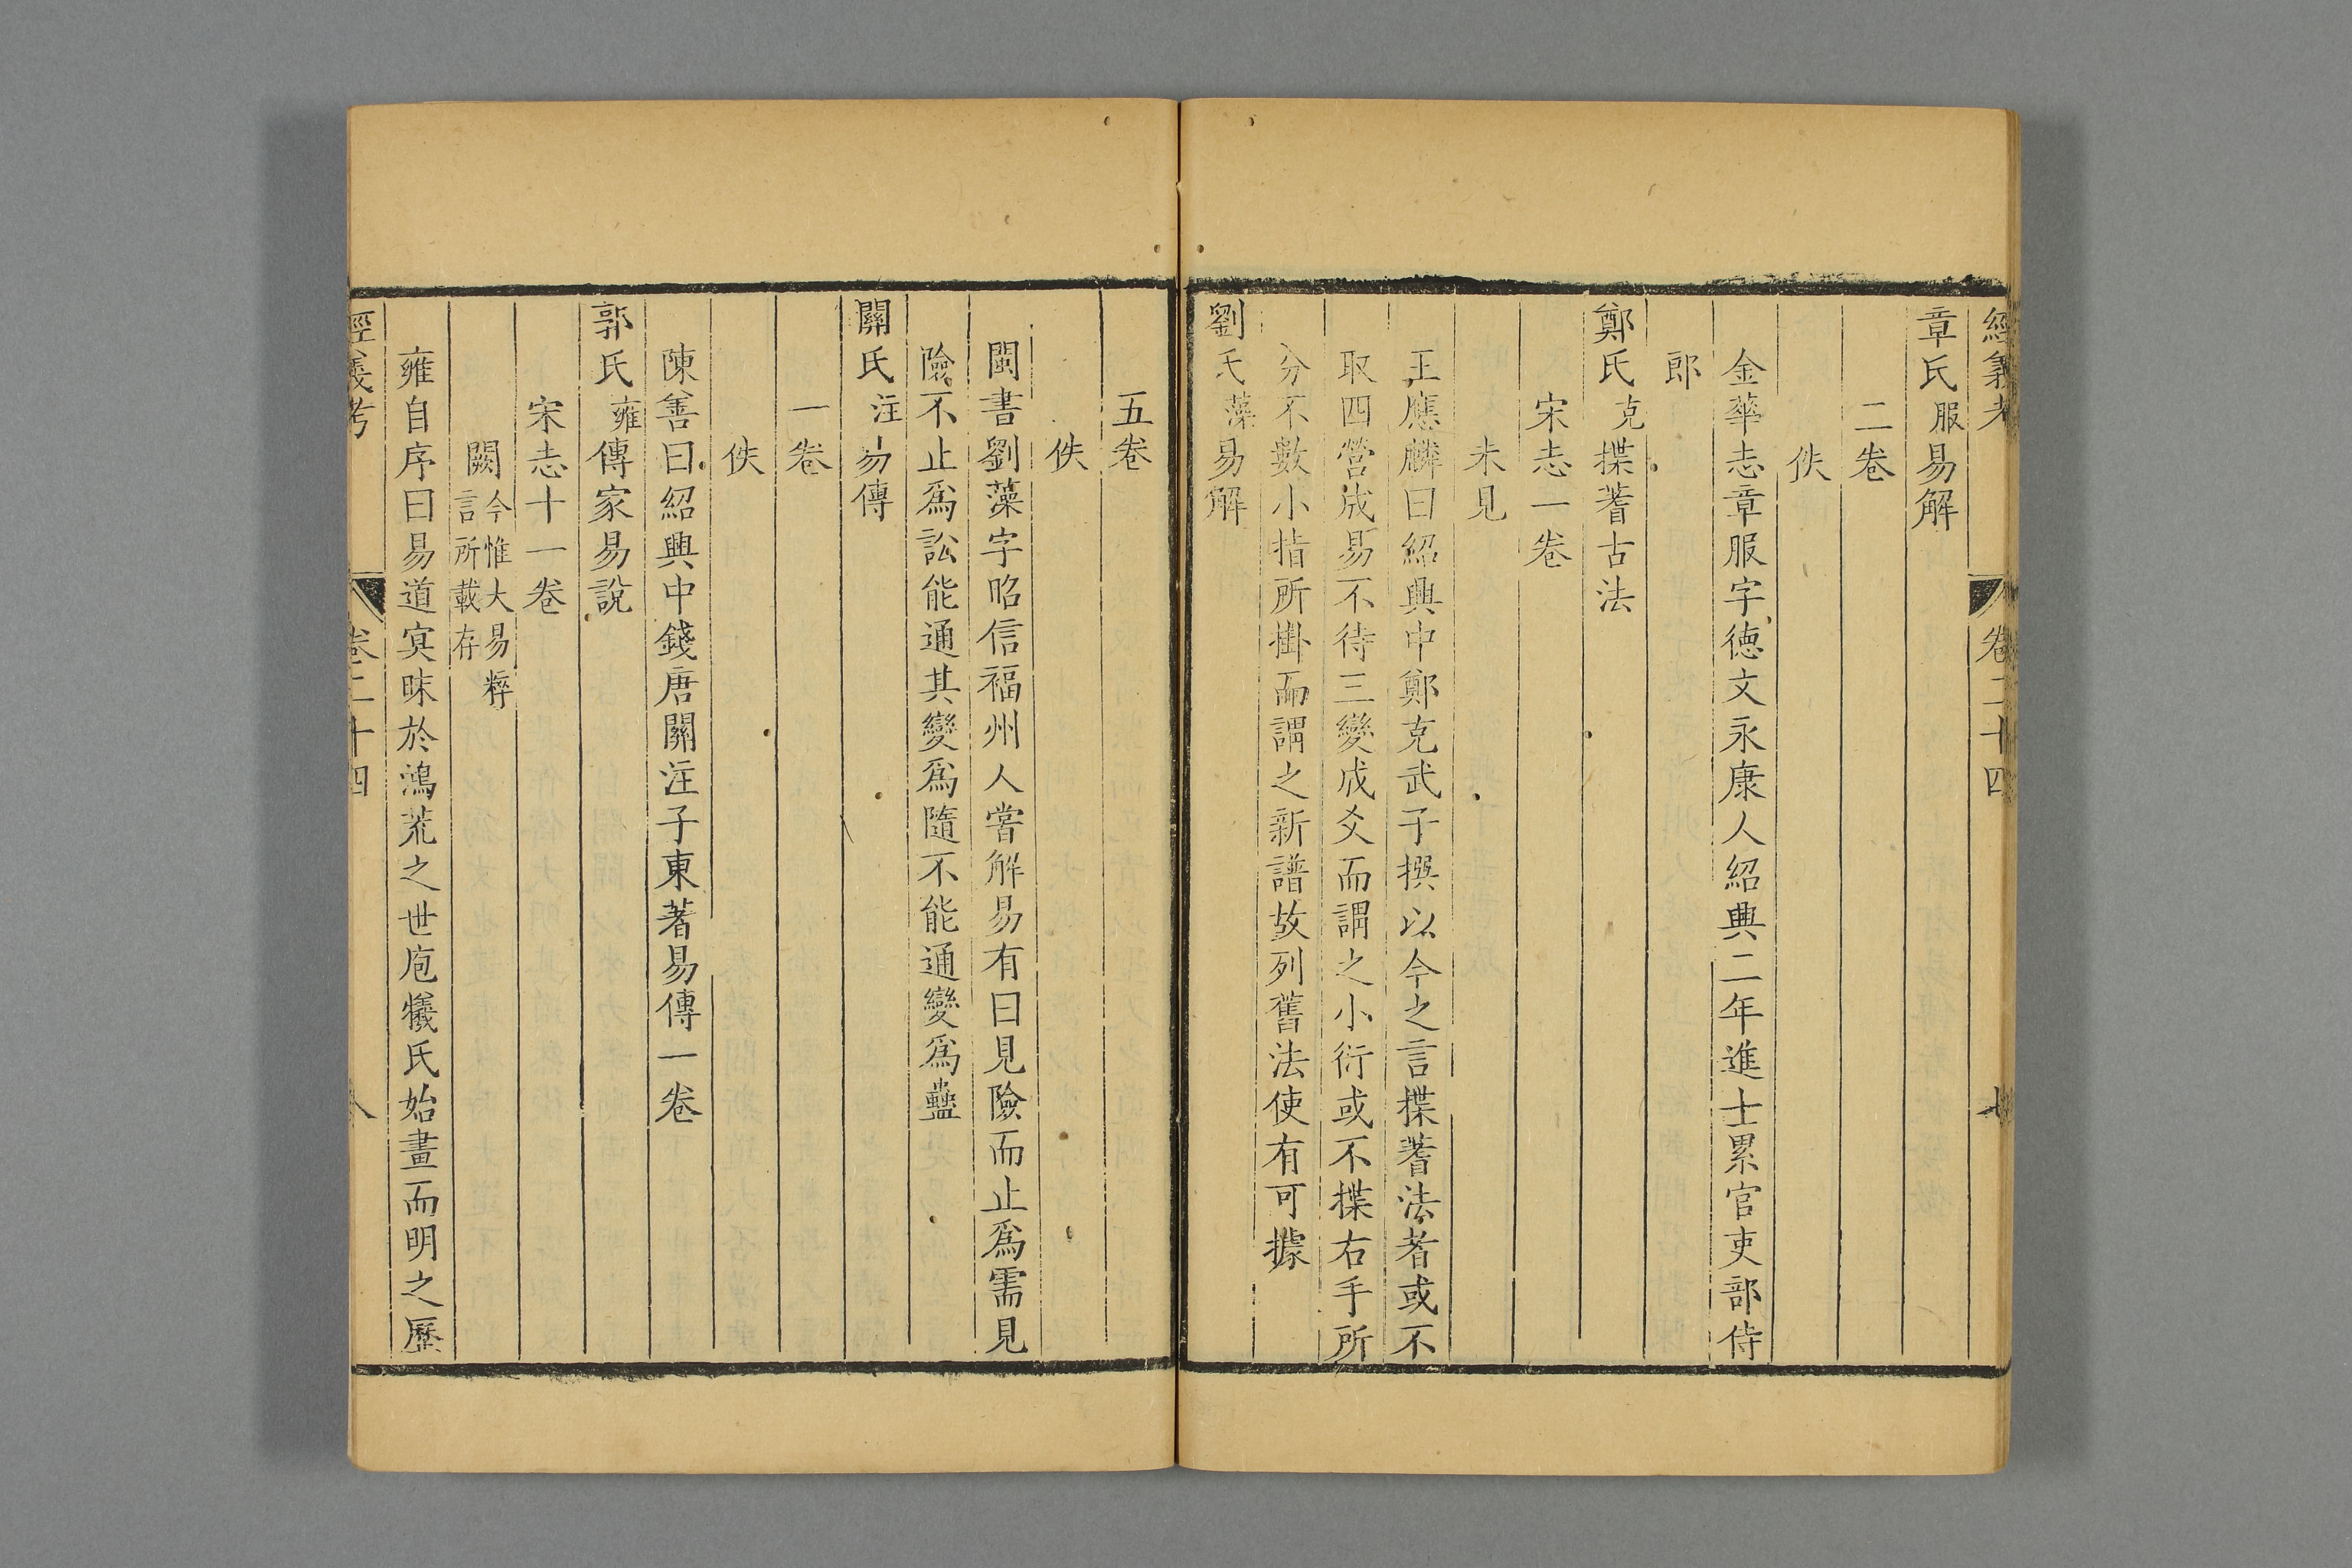 經義考 卷二十四 七
章氏服易解
二卷
佚
金華志章服字德文永康人紹興二年進士累官吏部侍
郎
鄭氏克揲蓍古法
宋志一卷
未見
王應麟曰紹興中鄭克武子撰以今之言揲蓍法者或不
取四營成易不待三變成爻而謂之小衍或不揲右手所
分不數小指所掛而謂之新譜故列舊法使有可據
劉氏藻易解
五卷
佚
閩書劉藻字昭信福州人嘗解易有曰見險而止爲需見
險不止爲訟能通其變爲隨不能通變爲蠱
關氏注易傳
一卷
佚
陳善曰紹興中錢唐關注子東著易傳一卷
郭氏雍傳家易說
宋志十一卷
闕今惟大易粹
言所載存
雍自序曰易道冥昧於鴻荒之世庖犧氏始畫而明之歷
經義考 卷二十四 八